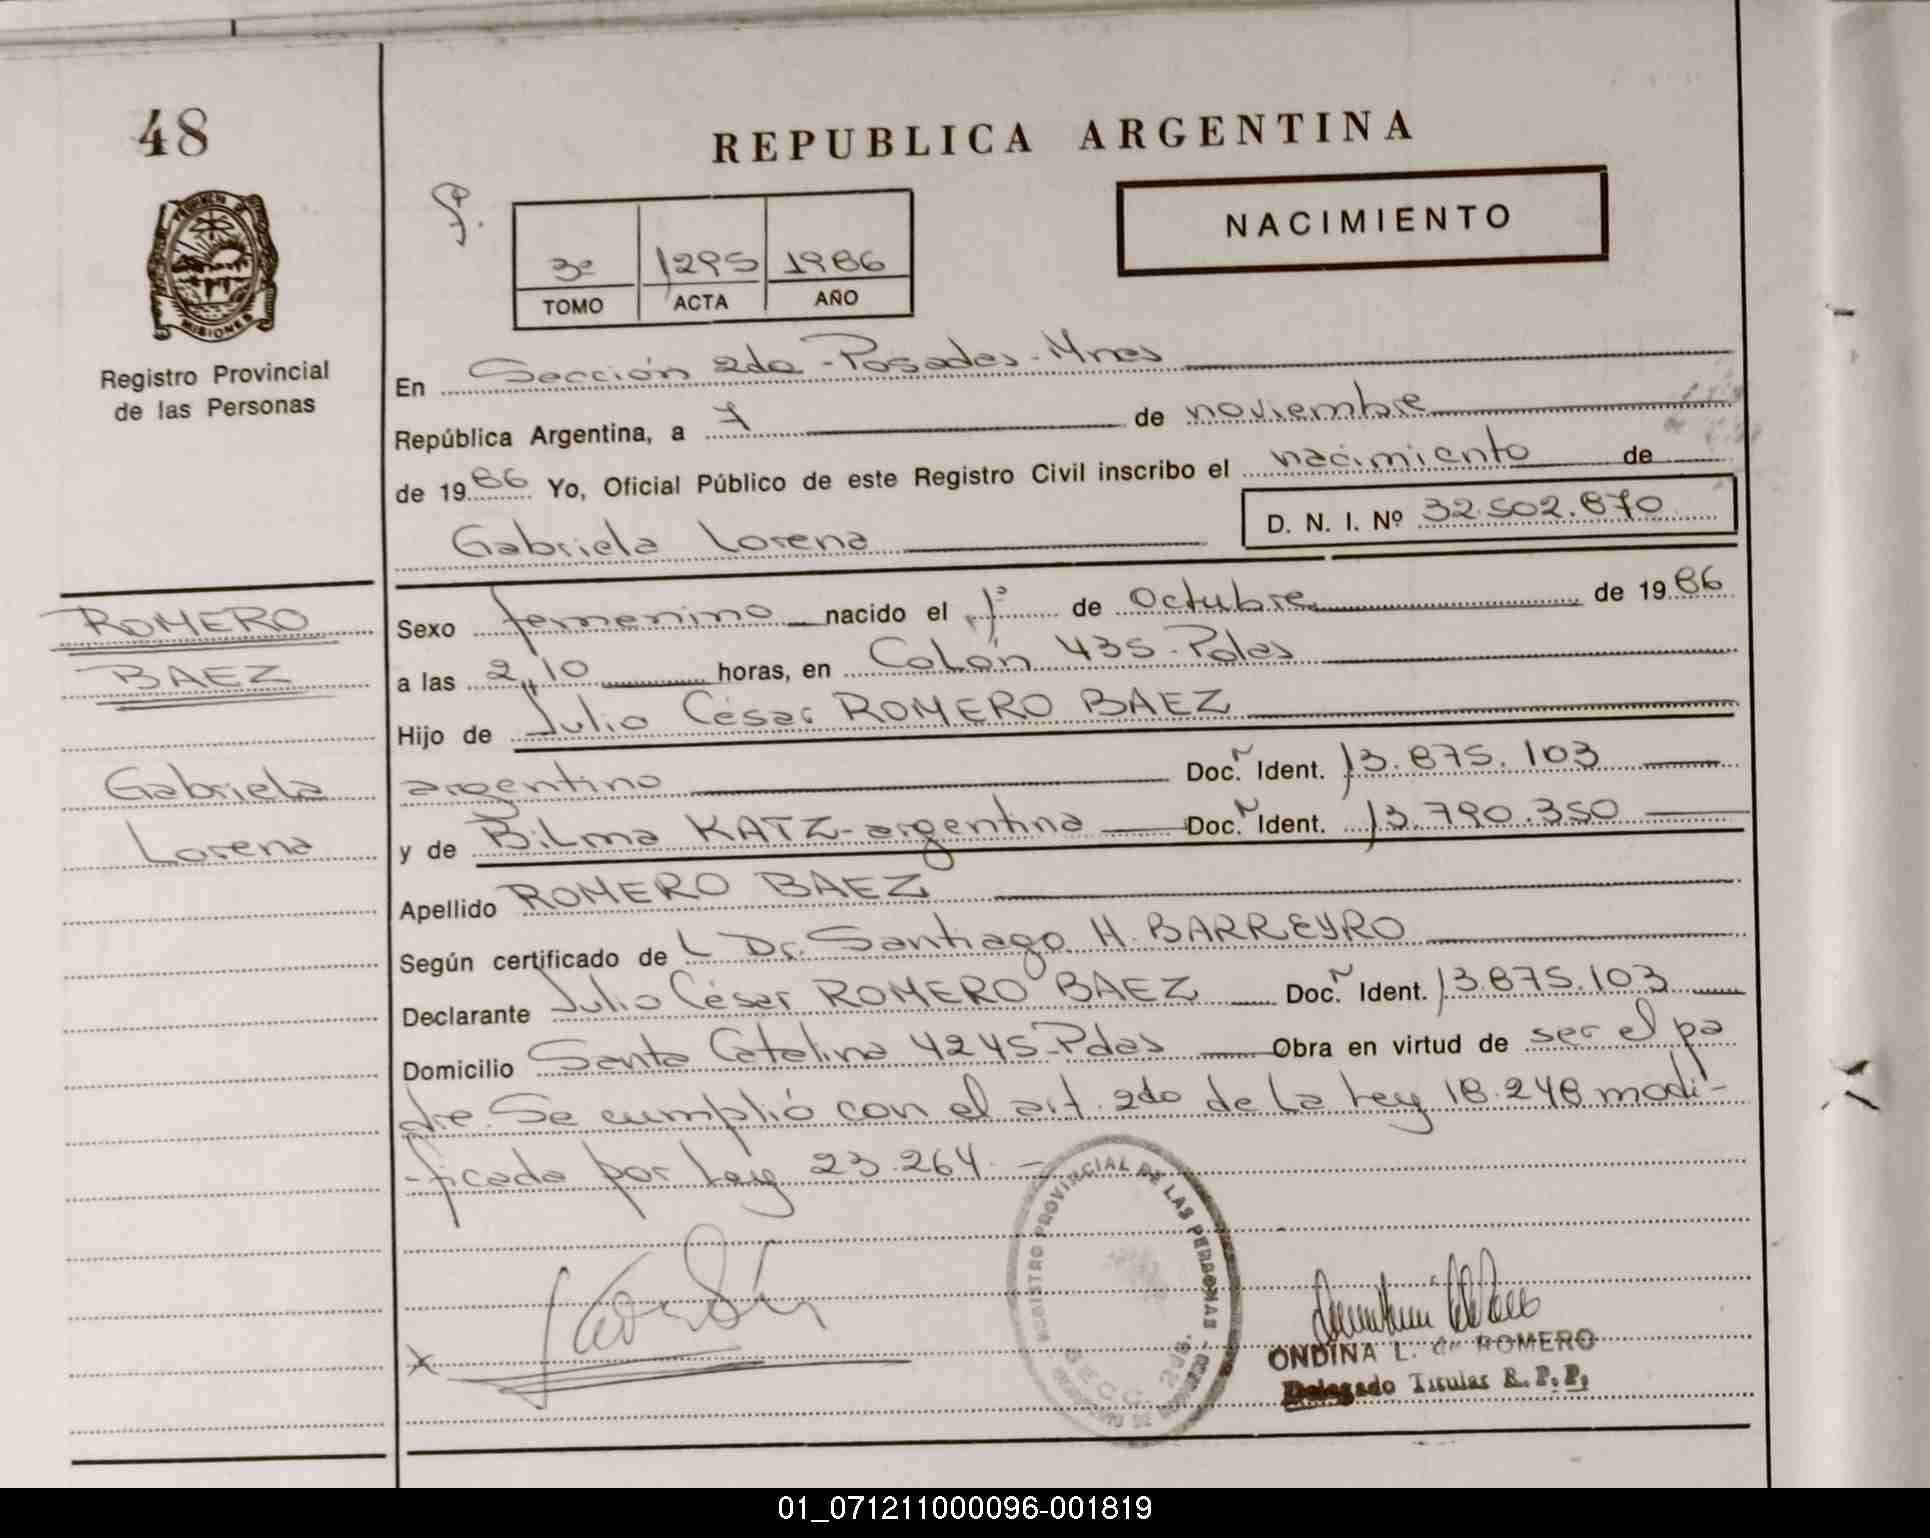 48
REPUBLICA ARGENTINA
NACIMIENTO
3º 1295 1986
TOMO ACTA AÑO
PROVINCIA DE MISIONES
Registro Provincial
de las Personas
En Sección 2da - Posadas - Mnes
República Argentina, a 7 de noviembre
de 1986 Yo, Oficial Público de este Registro Civil inscribo el nacimiento de
Gabriela Lorena D. N. I. Nº 32.502.870
ROMERO
BAEZ
Gabriela
Lorena
Sexo femenino nacido el 1º de Octubre de 1986
a las 2,10 horas, en Colón 435 - Pdas
Hijo de Julio César ROMERO BAEZ
argentino Doc. Ident. 13.875.103
y de Bilma KATZ - argentina Doc. Ident. 13.790.350
Apellido ROMERO BAEZ
Según certificado de L Dr. Santiago H. BARREYRO
Declarante Julio César ROMERO BAEZ Doc. Ident. 13.875.103
Domicilio Santa Catalina 4245 - Pdas Obra en virtud de ser el pa
dre. Se cumplió con el art. 2do de la Ley 18.248 modi-
-ficada por Ley 23.264.-
REGISTRO PROVINCIAL DE LAS PERSONAS
SECC. 2da.
ONDINA L. de ROMERO
Delegado Titular R. P. P.
01_071211000096-001819